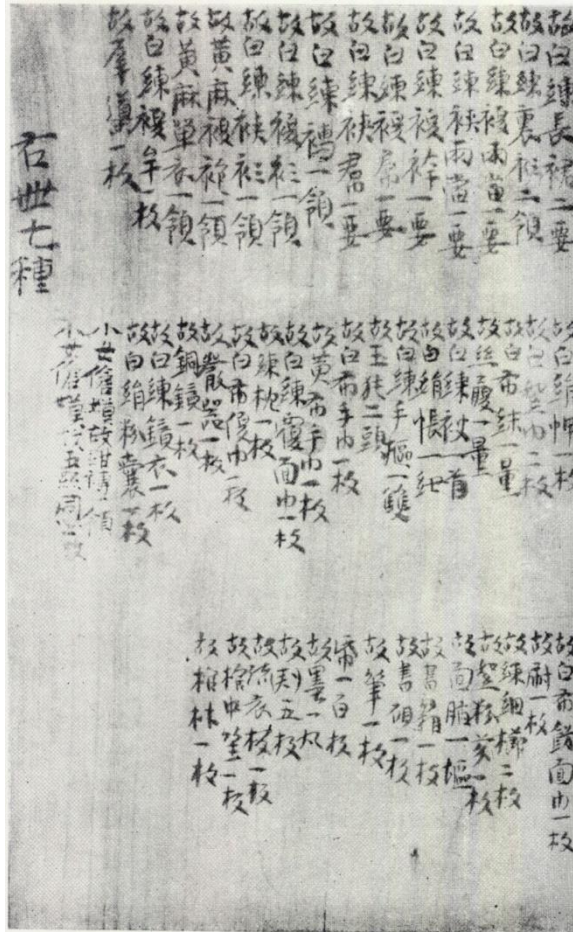 故白練長裙二要
故白練裏衫二領
故白練複兩當一要
故白練袂兩當一要
故白練複袴一要
故白練複帬一要
故白練袂帬一要
故白練襦一領
故白練複衫一領
故白練袂衫一領
故黃麻複袍一領
故黃麻單衣一領
故白練複牟一枚
故犀導一枚
右卅七種
故白絹帽一枚
故白布袜一量
故絲履一量
故白練被一首
故白絹帳一紐
故白練手一雙
故玉㹠二頭
故白布手巾一枚
故黃布手巾一枚
故白練覆面巾一枚
故練枕一枚
故白布巾一枚
故嚴器一枚
故銅鏡一枚
故白練鏡衣一枚
故白絹粉囊一枚
故白布飾面巾一枚
故尉一枚
故練細櫛二枚
故面脂一
故書箱一枚
故書硯一枚
故筆一枚
紙一百枚
故墨一丸
故刺五枚
故棺材一枚